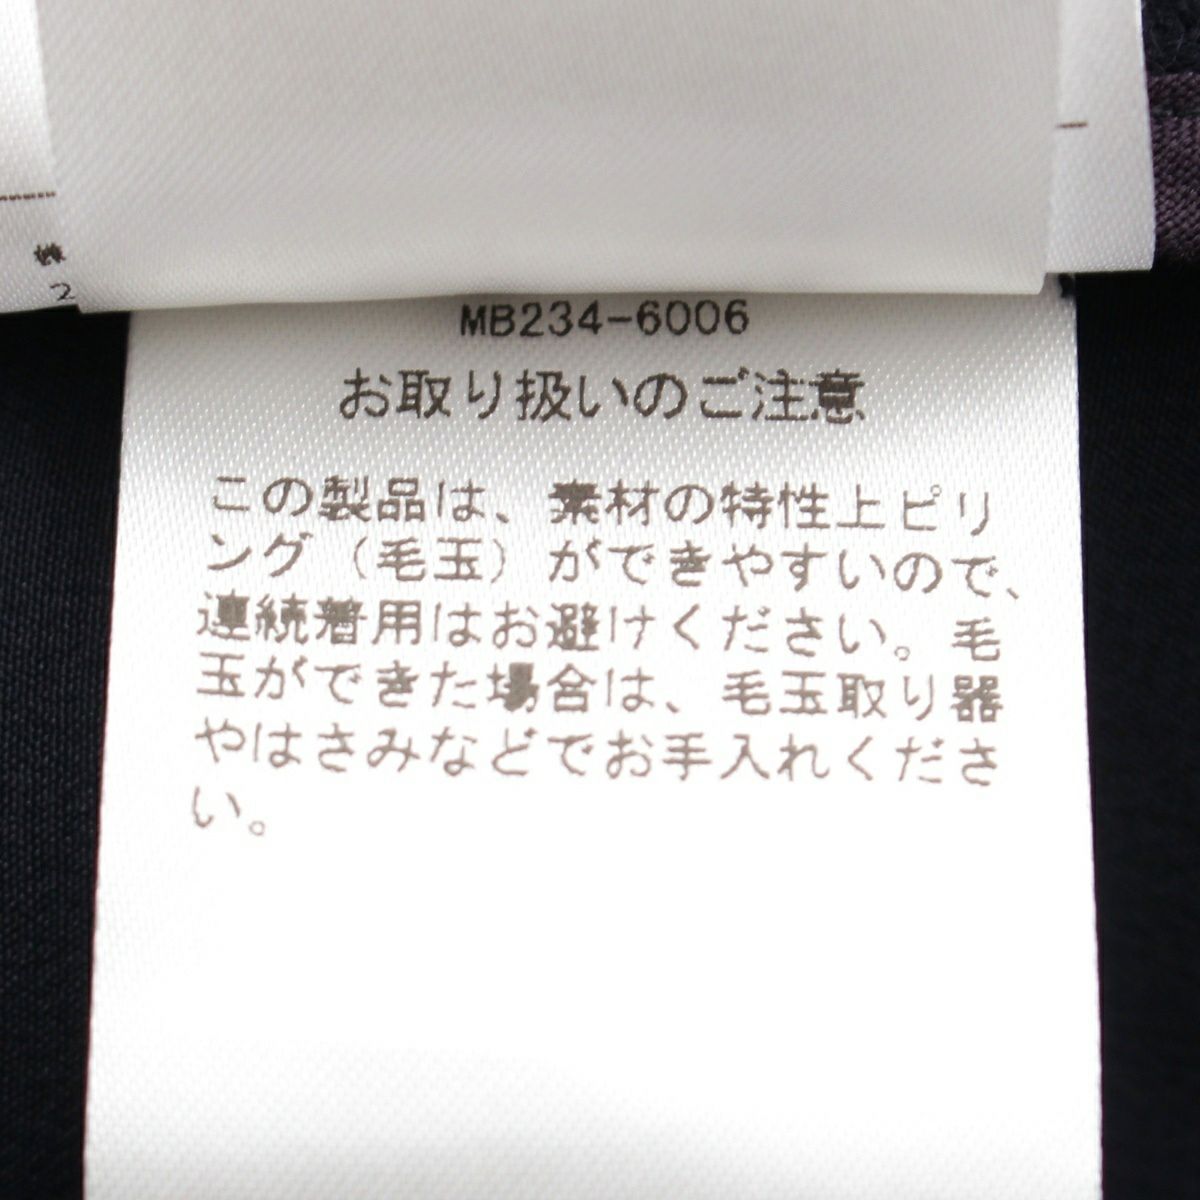 MB234-6006
お取り扱いのご注意
この製品は、素材の特性上ピリ
ング（毛玉）ができやすいので、
連続着用はお避けください。毛
玉ができた場合は、毛玉取り器
やはさみなどでお手入れくださ
い。
2